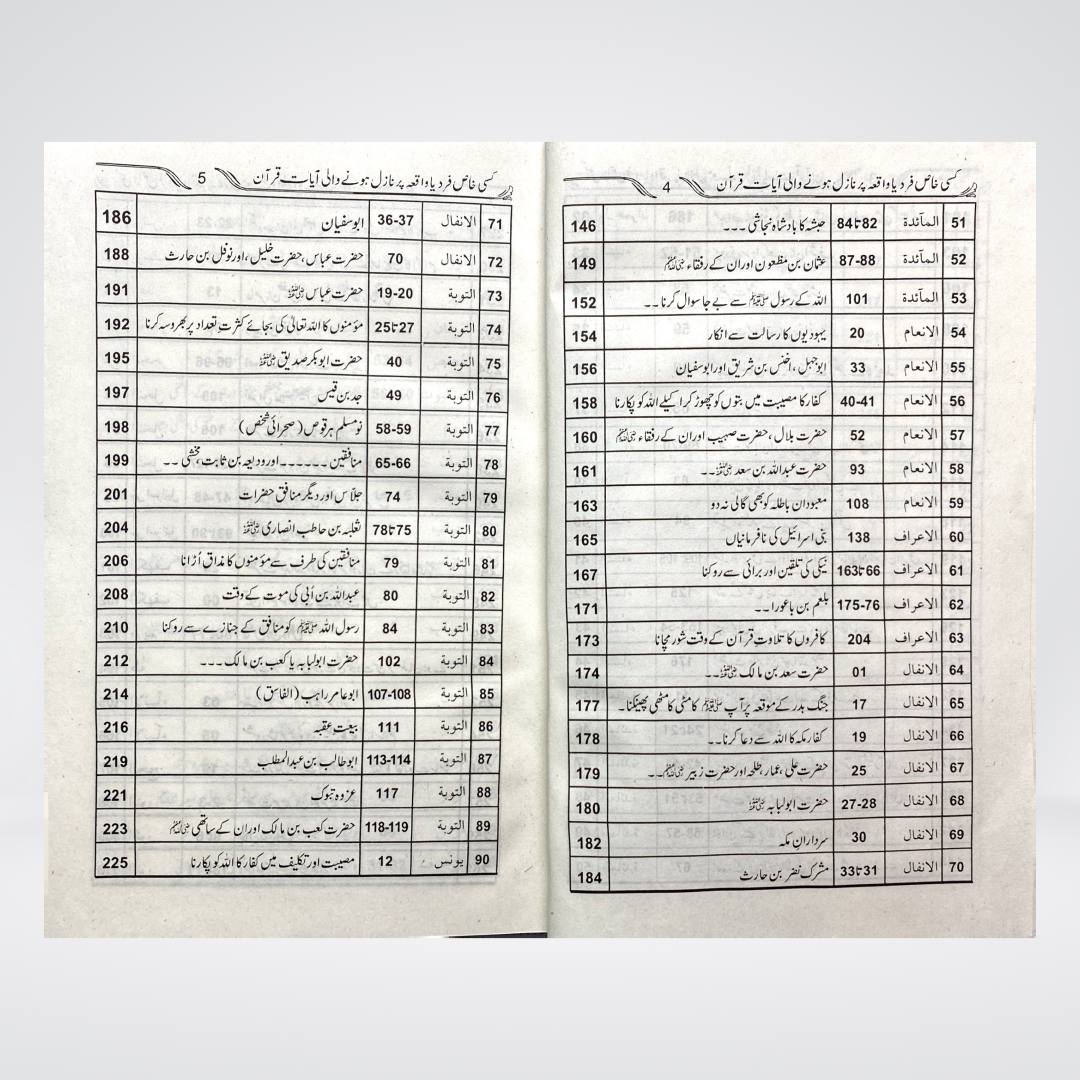 کسی خاص فرد یا واقعہ پر نازل ہونے والی آیات قرآن 4
51 المآئدة 82تا84 حبشہ کا بادشاہ نجاشی ۔۔۔ 146
52 المآئدة 87-88 عثمان بن مظعون اور ان کے رفقاء رضی اللہ عنہم 149
53 المآئدة 101 اللہ کے رسول ﷺ سے بے جا سوال کرنا ۔۔ 152
54 الانعام 20 یہودیوں کا رسالت سے انکار 154
55 الانعام 33 ابوجہل، اخنس بن شریق اور ابوسفیان 156
56 الانعام 40-41 کفار کا مصیبت میں بتوں کو چھوڑ کر اکیلے اللہ کو پکارنا 158
57 الانعام 52 حضرت بلال، حضرت صہیب اور ان کے رفقاء رضی اللہ عنہم 160
58 الانعام 93 حضرت عبداللہ بن سعد رضی اللہ عنہ ۔۔ 161
59 الانعام 108 معبودان باطلہ کو بھی گالی نہ دو 163
60 الاعراف 138 بنی اسرائیل کی نافرمانیاں 165
61 الاعراف 163تا66 نیکی کی تلقین اور برائی سے روکنا 167
62 الاعراف 175-76 بلعم بن باعورا ۔۔ 171
63 الاعراف 204 کافروں کا تلاوتِ قرآن کے وقت شور مچانا 173
64 الانفال 01 حضرت سعد بن مالک رضی اللہ عنہ ۔۔ 174
65 الانفال 17 جنگ بدر کے موقعہ پر آپ ﷺ کا مٹی کا مٹھی پھینکنا۔ 177
66 الانفال 19 کفار مکہ کا اللہ سے دعا کرنا ۔۔ 178
67 الانفال 25 حضرت علی، عمار، طلحہ اور حضرت زبیر رضی اللہ عنہم ۔۔ 179
68 الانفال 27-28 حضرت ابولبابہ رضی اللہ عنہ 180
69 الانفال 30 سردارانِ مکہ 182
70 الانفال 31تا33 مشرک نضر بن حارث 184
کسی خاص فرد یا واقعہ پر نازل ہونے والی آیات قرآن 5
71 الانفال 36-37 ابوسفیان 186
72 الانفال 70 حضرت عباس، حضرت خلیل، اور نوفل بن حارث 188
73 التوبة 19-20 حضرت عباس رضی اللہ عنہ 191
74 التوبة 25تا27 مؤمنوں کا اللہ تعالیٰ کی بجائے کثرتِ تعداد پر بھروسہ کرنا 192
75 التوبة 40 حضرت ابوبکر صدیق رضی اللہ عنہ 195
76 التوبة 49 جد بن قیس 197
77 التوبة 58-59 نومسلم ہرقوص (صحرائی شخص) 198
78 التوبة 65-66 منافقین ۔۔۔۔۔۔ اور ودیعہ بن ثابت، مخشی ۔۔ 199
79 التوبة 74 جلاس اور دیگر منافق حضرات 201
80 التوبة 75تا78 ثعلبہ بن حاطب انصاری رضی اللہ عنہ 204
81 التوبة 79 منافقین کی طرف سے مؤمنوں کا مذاق اُڑانا 206
82 التوبة 80 عبداللہ بن اُبی کی موت کے وقت 208
83 التوبة 84 رسول اللہ ﷺ کو منافق کے جنازے سے روکنا 210
84 التوبة 102 حضرت ابولبابہ یا کعب بن مالک ۔۔۔ 212
85 التوبة 107-108 ابو عامر راہب (الفاسق) 214
86 التوبة 111 بیعت عقبہ 216
87 التوبة 113-114 ابوطالب بن عبدالمطلب 219
88 التوبة 117 غزوہ تبوک 221
89 التوبة 118-119 حضرت کعب بن مالک اور ان کے ساتھی رضی اللہ عنہم 223
90 یونس 12 مصیبت اور تکلیف میں کفار کا اللہ کو پکارنا 225